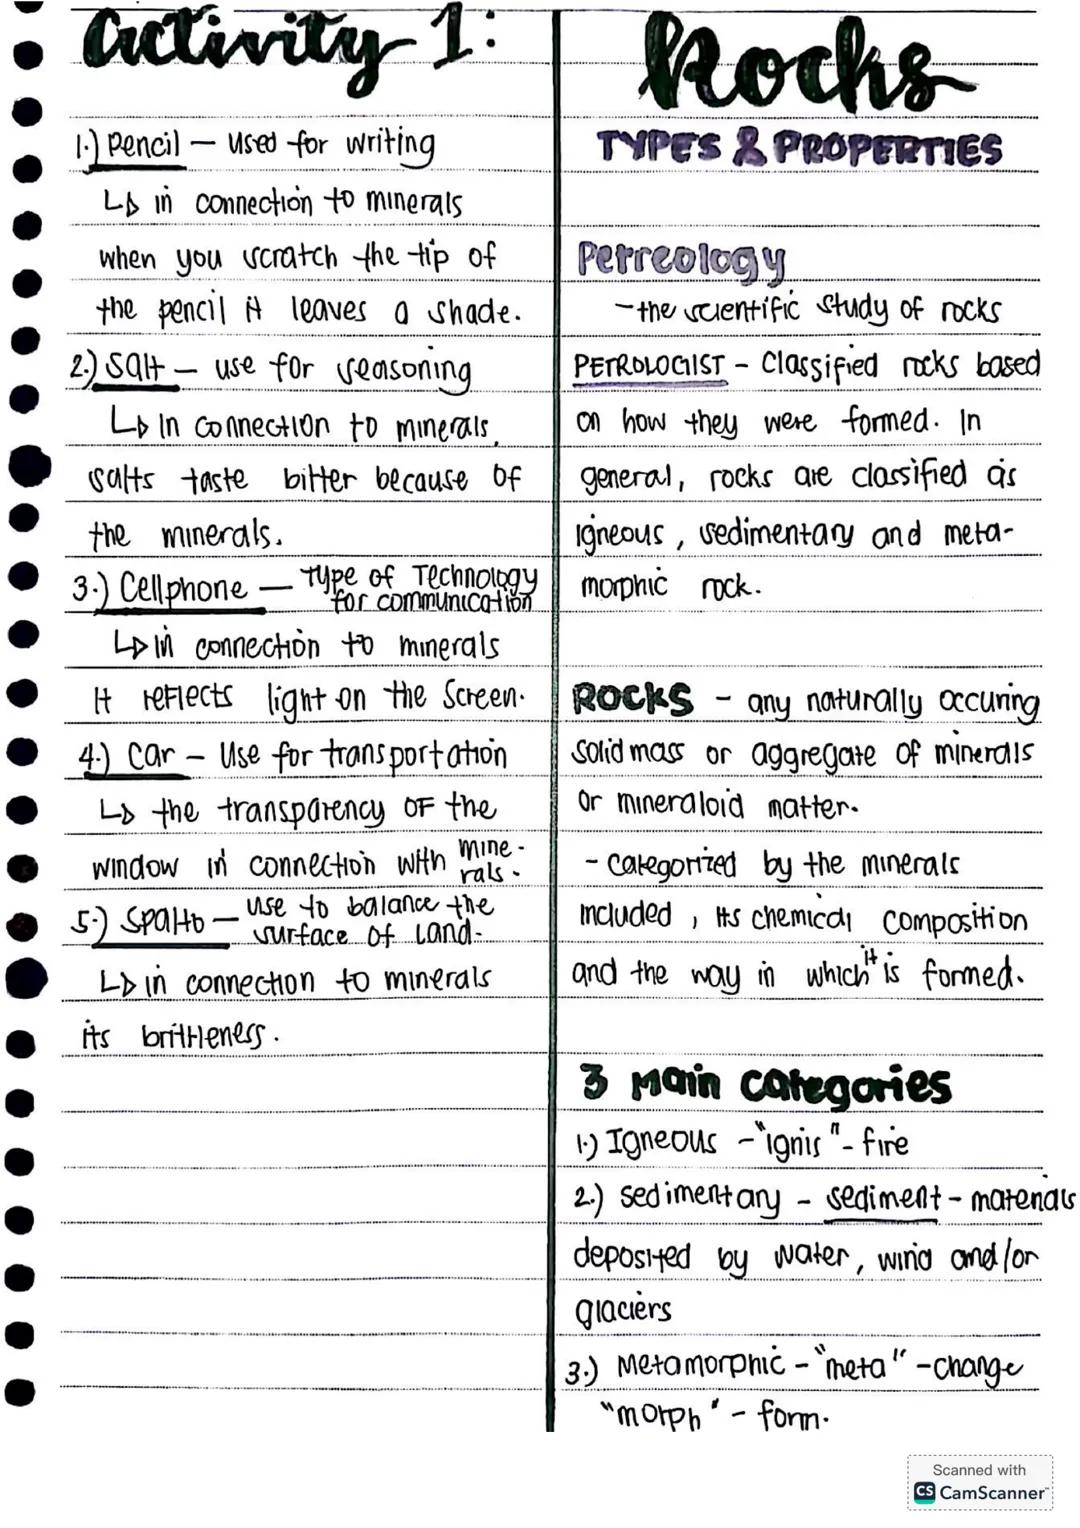 Activity 1:
1.) Pencil – Used for writing
↳ in connection to minerals
when you scratch the tip of
the pencil it leaves a shade.
2.) Salt – use for seasoning
↳ In connection to minerals,
salts taste bitter because of
the minerals.
3.) Cellphone – Type of Technology
for communication
↳ in connection to minerals
It reflects light on the screen.
4.) Car – Use for transportation
↳ the transparency of the
window in connection with mine-
rals.
5.) Spalto – use to balance the
surface of land.
↳ in connection to minerals
its brittleness.
Rocks
TYPES & PROPERTIES
Petreology
- the scientific study of rocks
PETROLOGIST - Classified rocks based
on how they were formed. In
general, rocks are classified as
igneous, sedimentary and meta-
morphic rock.
ROCKS - any naturally occuring
solid mass or aggregate of minerals
or mineraloid matter.
- Categorized by the minerals
included, its chemical composition
and the way in which it is formed.
3 Main Categories
1.) Igneous - "ignis" - fire
2.) Sedimentary - sediment - materials
deposited by water, wind and/or
glaciers
3.) Metamorphic - "meta" - change
"morph" - form.
Scanned with
CS CamScanner